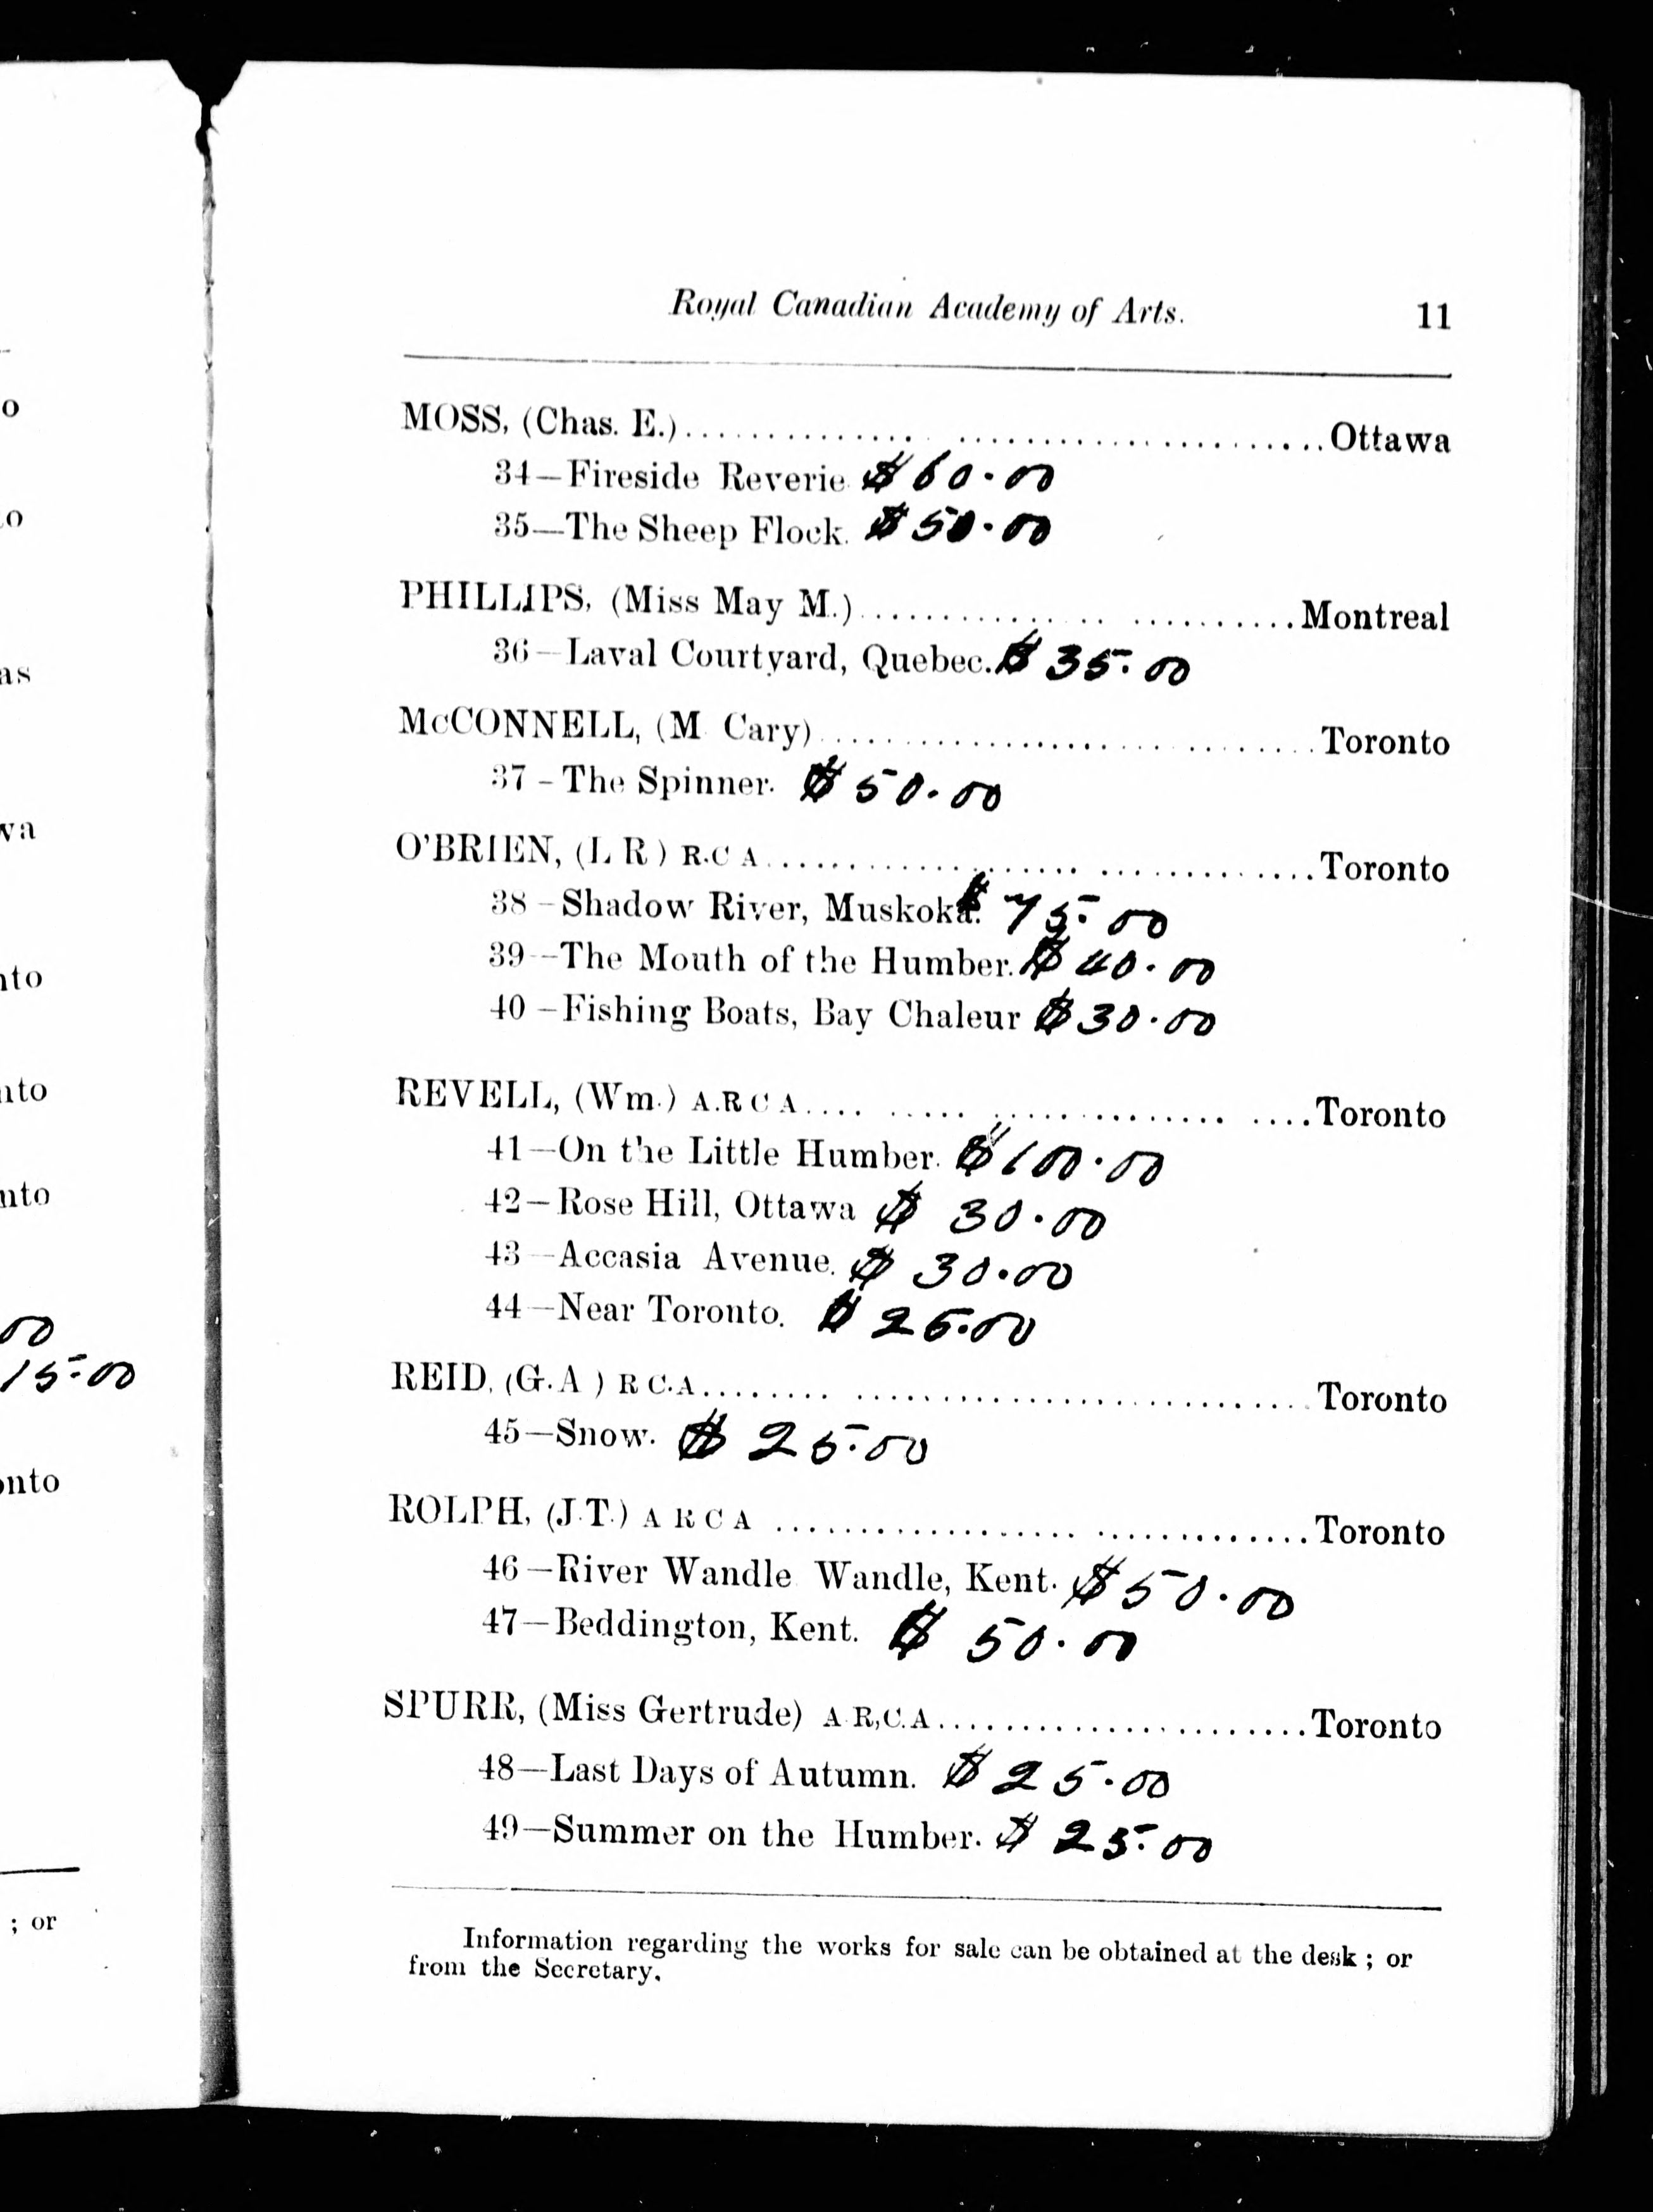 Royal Canadian Academy of Arts. 11
MOSS, (Chas. E.)........................................Ottawa
34—Fireside Reverie $60.00
35—The Sheep Flock. $50.00
PHILLIPS, (Miss May M.)..........................Montreal
36—Laval Courtyard, Quebec. $35.00
McCONNELL, (M Cary)..............................Toronto
37-The Spinner. $50.00
O'BRIEN, (L R) R.C A................................Toronto
38-Shadow River, Muskoka. $75.00
39—The Mouth of the Humber. $40.00
40-Fishing Boats, Bay Chaleur $30.00
REVELL, (Wm.) A.R C A..............................Toronto
41—On the Little Humber. $100.00
42—Rose Hill, Ottawa $30.00
43—Accasia Avenue. $30.00
44—Near Toronto. $25.00
REID, (G.A) R C.A....................................Toronto
45—Snow. $25.00
ROLPH, (J.T.) A R C A ...............................Toronto
46—River Wandle Wandle, Kent. $50.00
47—Beddington, Kent. $50.00
SPURR, (Miss Gertrude) A R,C.A.......................Toronto
48—Last Days of Autumn. $25.00
49—Summer on the Humber. $25.00
Information regarding the works for sale can be obtained at the desk ; or
from the Secretary.